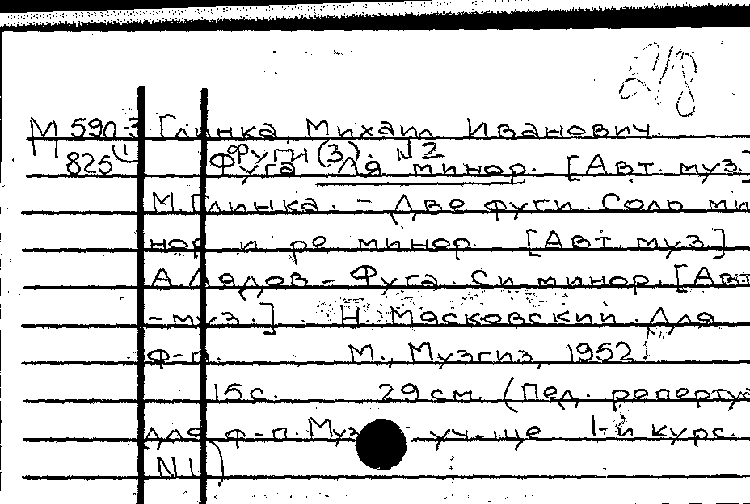 2/8
М 590-3 Глинка, Михаил Иванович
825 Фуги (3). N 2
Фуга Ля минор. [Авт. муз.]
М. Глинка. - Две фуги. Соль ми
нор и ре минор. [Авт. муз.]
А. Лядов - Фуга. Си минор. [Авт
- муз.] Н. Мясковский. Для
ф-п. М., Музгиз, 1952.
15 с. 29 см. (Пед. репертуа
для ф-п. Муз уч-ще 1-й курс.
N 1)